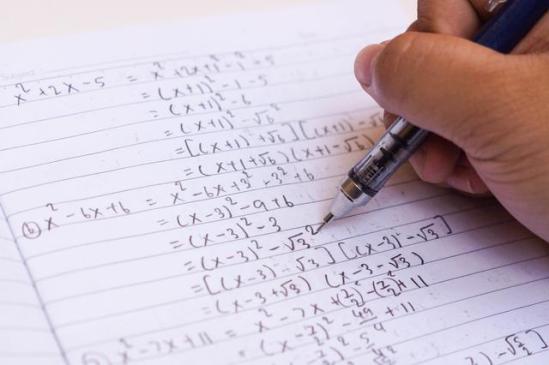 x² + 2x - 5 = x² + 2x + 1² - 1² - 5
= (x+1)² - 1 - 5
= (x+1)² - 6
= (x+1)² - √6²
= [(x+1) + √6] [(x+1) - √6]
= (x+1+√6) (x+1-√6)
(b) x² - 6x + 6 = x² - 6x + 3² - 3² + 6
= (x-3)² - 9 + 6
= (x-3)² - 3
= (x-3)² - √3²
= [(x-3) - √3] [(x-3)² - √3]
= (x-3+√3) (x-3-√3)
x² - 7x + 11 = x² - 7x + (7/2)² - (7/2)² + 11
= (x - 7/2)² - 49/4 + 11